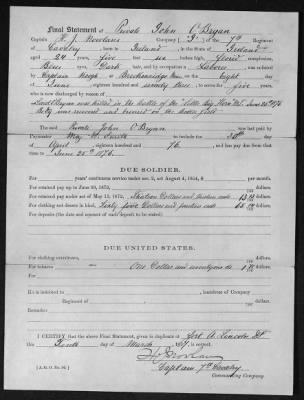 Final Statement of Private John O'Bryan
Captain H. J. Nowlan's Company ( "I" ) 7th Regiment
of Cavalry, born in Ireland, in the State of Ireland
aged 24 years, five feet inches high, complexion,
Blue eyes, Dark hair, and by occupation a Laborer was enlisted by
Captain Keogh at Breckenridge Minn on the Eight day of
June, eighteen hundred and seventy three, to serve five years,
who is now discharged by reason of
Said O'Bryan was killed in the battle of the Little Big Horn M.T. June 25th 1876
body was recovered and buried on the battle field
The said Private John O'Bryan was last paid by
Paymaster Maj. Smith to include the 30th day
of April, eighteen hundred and 76, and has pay due from that time to
June 25th 1876.
DUE SOLDIER.
For years' continuous service under sec. 2, act August 4, 1854, $ per month.
For retained pay up to June 30, 1872, dollars.
For retained pay under act of May 15, 1872, dollars.
For clothing not drawn in kind, Forty five Dollars and cents dollars.
For deposits (the date and amount of each deposit to be stated)
DUE UNITED STATES.
For clothing overdrawn, dollars.
For tobacco One Dollar and cents dollars.
He is indebted to , laundress of Company
Regiment of dollars.
Remarks:
I CERTIFY that the above Final Statement, given in duplicate at Fort A. Lincoln D.T. this
Tenth day of March 1877, is correct.
H. J. Nowlan
Captain 7th Cavalry
Commanding Company.